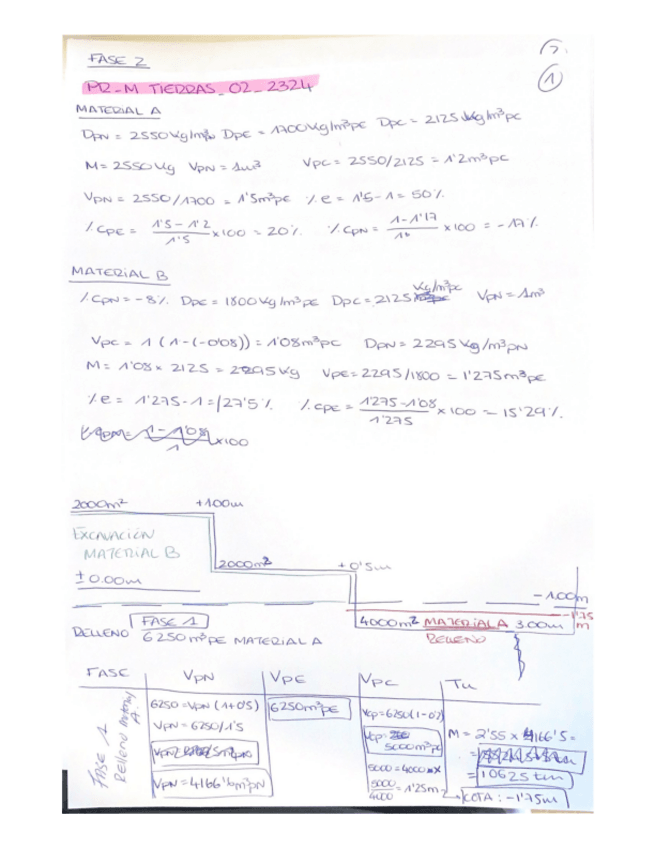 FASE 2
1
PR_M TIERRAS_02_2324
MATERIAL A
DPN = 2550 Kg/m³ DPE = 1700 Kg/m³PE DPC = 2125 Kg/m³PC
M = 2550 Kg VPN = 1m³ VPC = 2550/2125 = 1'2m³PC
VPN = 2550/1700 = 1'5m³PE %e = 1'5-1 = 50%
%CPE = 1'5-1'2/1'5 x100 = 20% %CPN = 1-1'17/ x100 = -17%
MATERIAL B
%CPN = -8% DPE = 1800 Kg/m³PE DPC = 2125 Kg/m³PC VPN = 1m³
VPC = 1 (1-(-0'08)) = 1'08m³PC DPN = 2295 Kg/m³PN
M = 1'08 x 2125 = 2295 Kg VPE = 2295/1800 = 1'275m³PE
%e = 1'275-1 = 27'5% %CPE = 1'275-1'08/1'275 x100 = 15'29%
1-1'08/1 x100
2000m² +1,00m
EXCAVACIÓN
MATERIAL B
2000m² +0'5m
±0.00m
-1.00m
-1'75
m
4000m² MATERIAL A 3.00m
RELLENO
FASE 1
RELLENO 6250m³PE MATERIAL A
FASE VPN VPE VPC Tn
FASE 1
Relleno Material A
6250 = VPN (1+0'5)
VPN = 6250/1'5
VPN = 4166'6m³PN
6250m³PE
VCP = 6250(1-0'2)
VCP = 5000m³PC
5000 = 4000 x X
5000/4000 = 1'25m
M = 2'55 x 4166'5 =
= 10625 tn
COTA: -1'75m